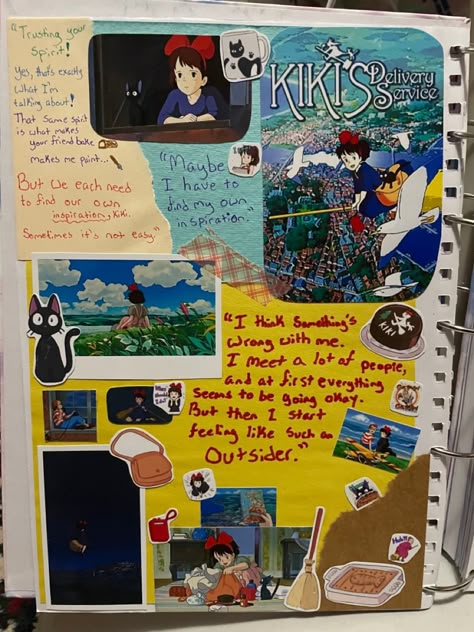 "Trusting your
Spirit!
Yes, that's exactly
what I'm
talking about!
That same spirit
is what makes
your friend bake
makes me paint...
But we each need
to find our own
inspiration, Kiki.
Sometimes it's not easy."
KIKI'S Delivery
Service
"Maybe
I have to
find my own
inspiration."
"I think Something's
wrong with me.
I meet a lot of people,
and at first everything
seems to be going okay.
But then I start
feeling like such an
Outsider."
KIKI